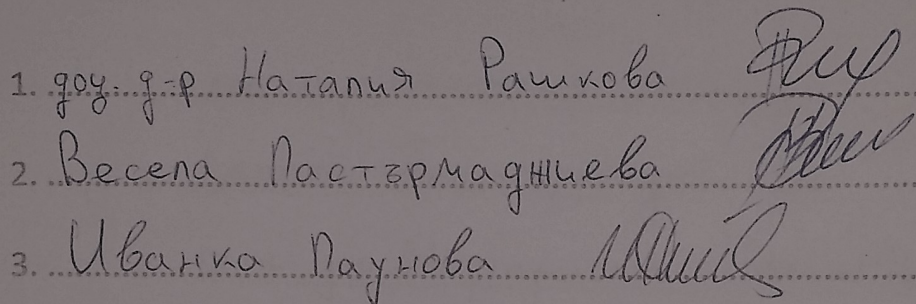 1. доц. д-р Наталия Рашкова
2. Весела Пастърмаджиева
3. Иванка Паунова